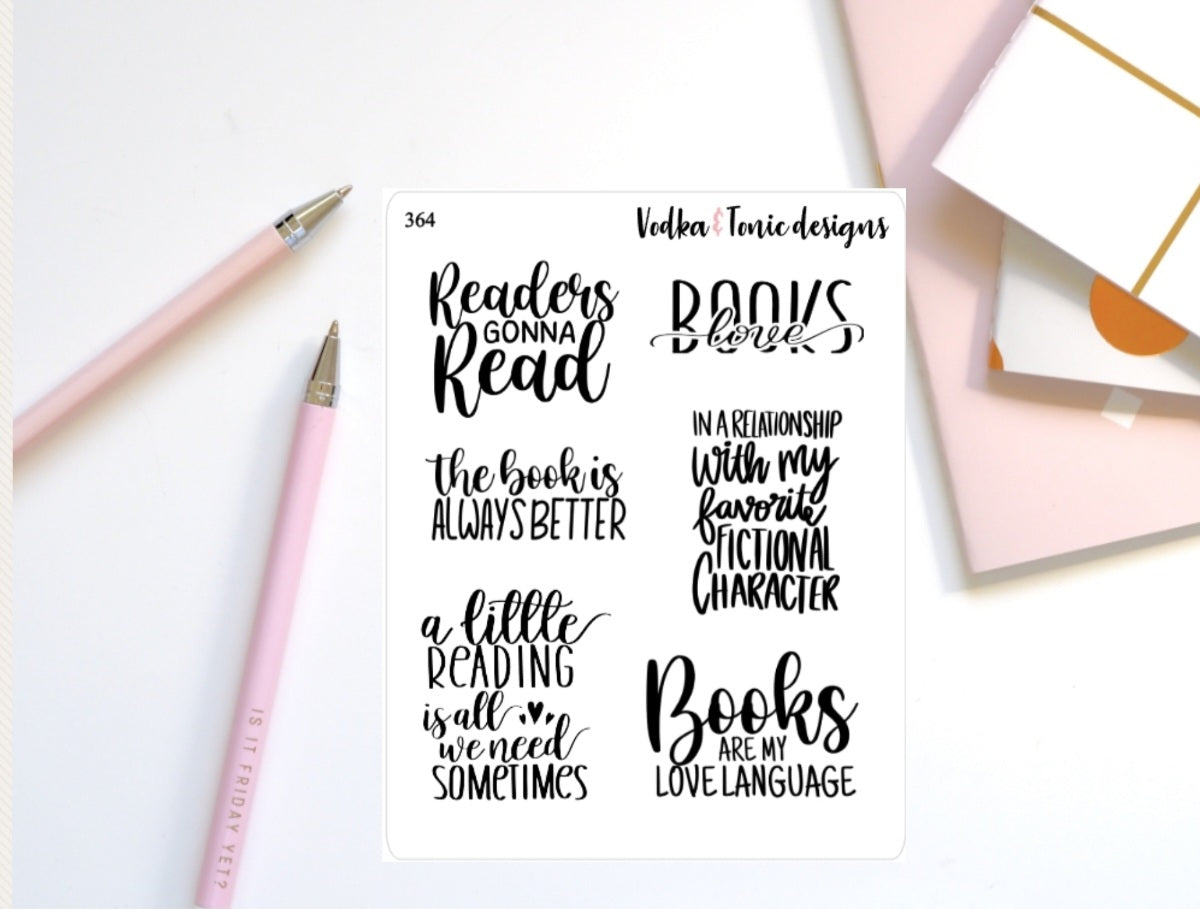 364
Vodka & Tonic designs
Readers
GONNA
Read
BOOKS
love
the book is
ALWAYS BETTER
IN A RELATIONSHIP
with my
favorite
FICTIONAL
CHARACTER
a little
READING
is all
we need
SOMETIMES
Books
ARE MY
LOVE LANGUAGE
IS IT FRIDAY YET?